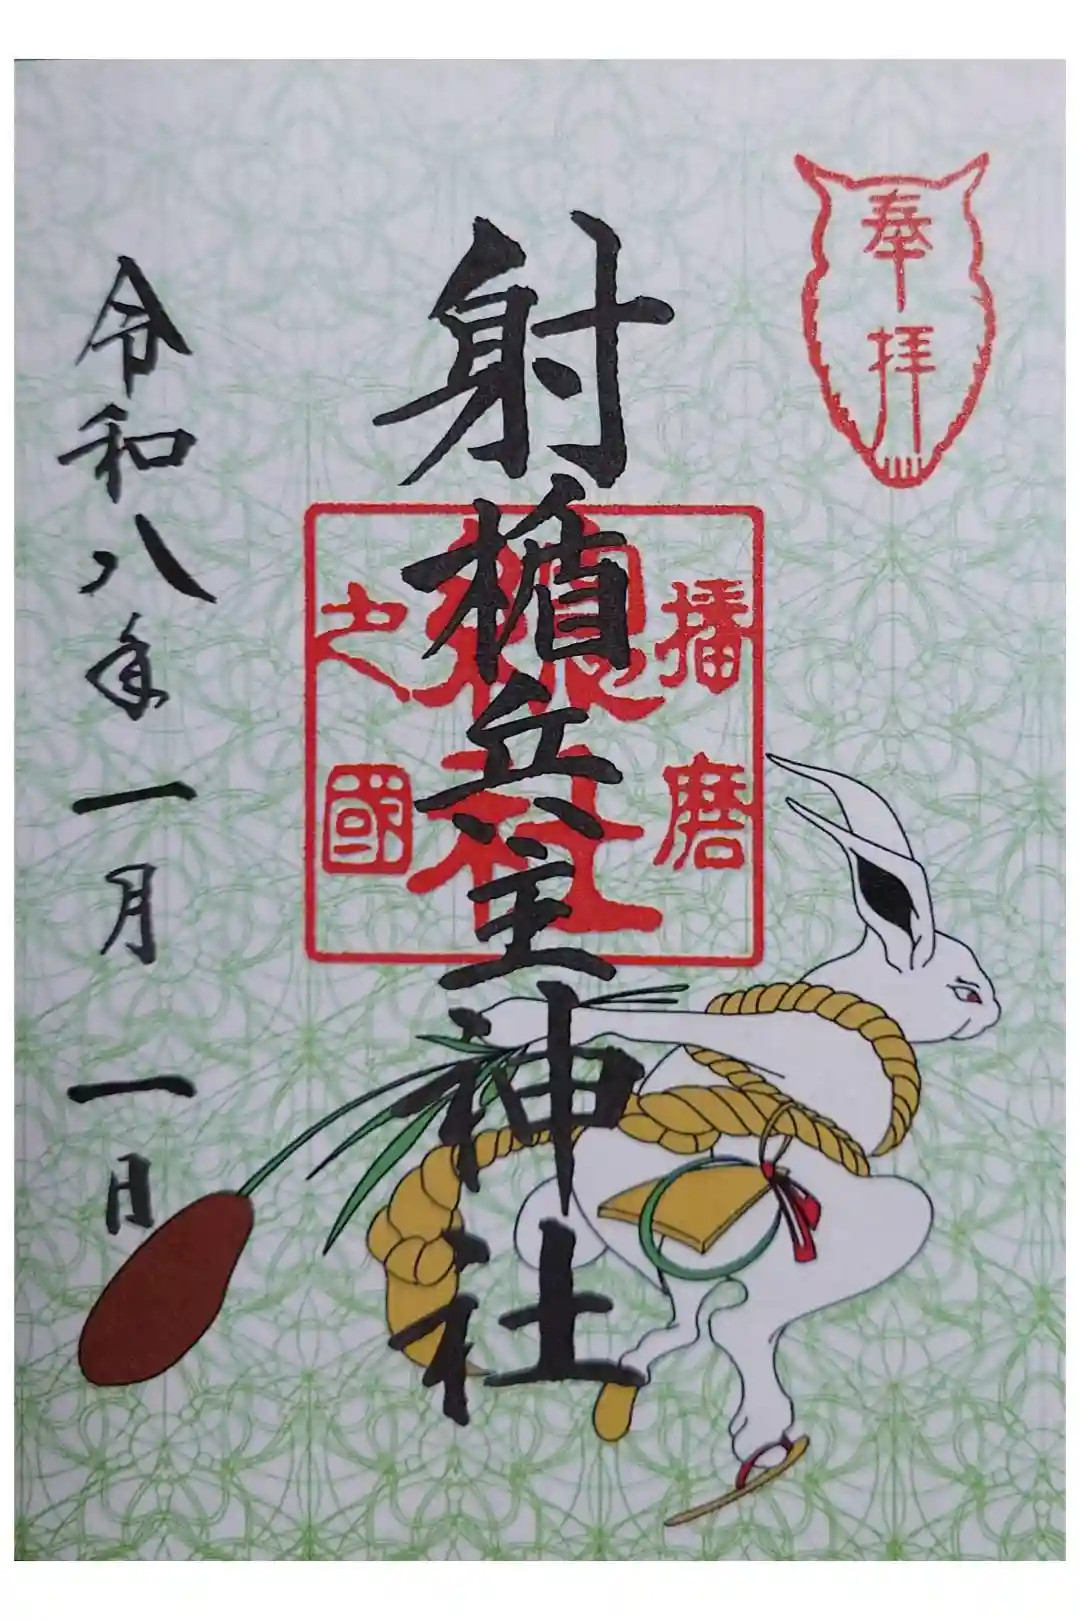 奉拝
射楯兵主神社
播磨
總社
之國
令和八年一月一日